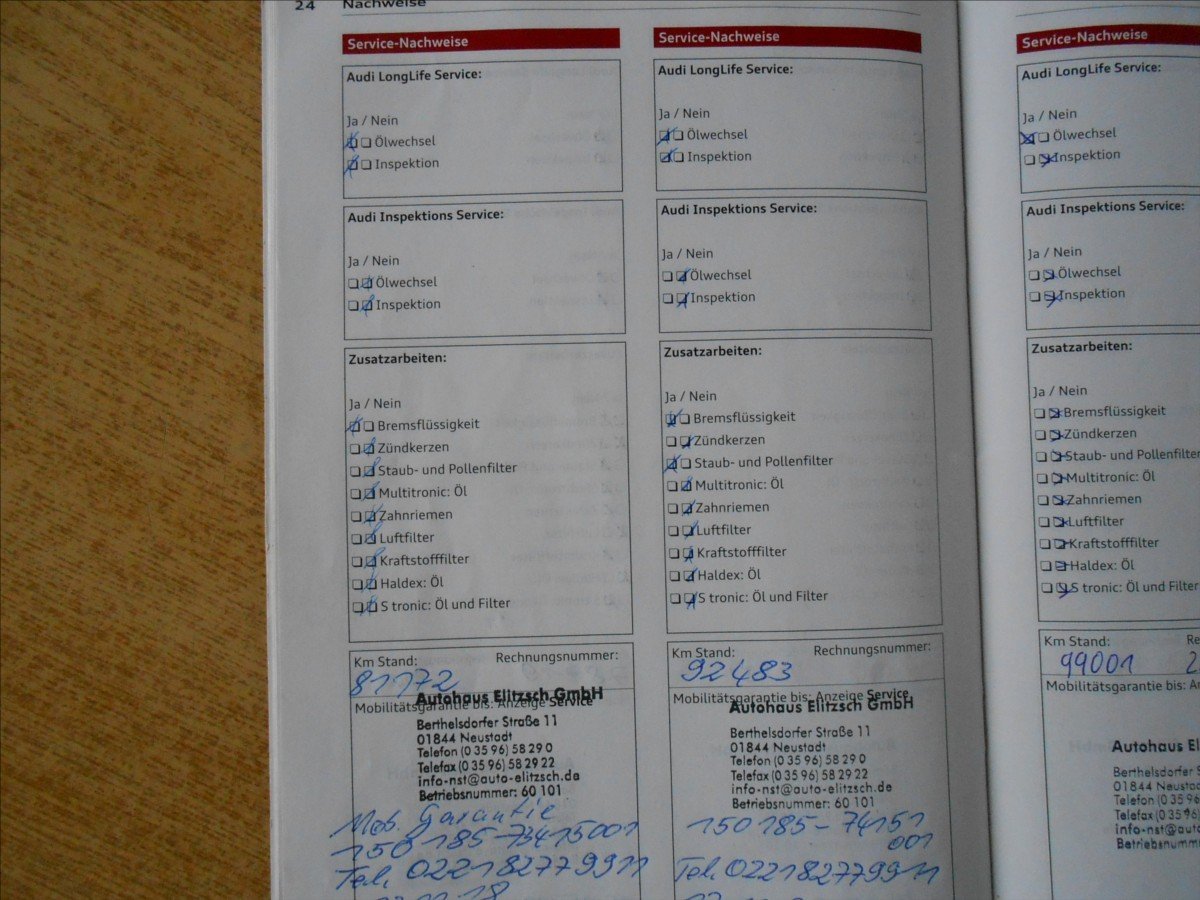 24 Nachweise
Service-Nachweise
Audi LongLife Service:
Ja / Nein
Ölwechsel
Inspektion
Audi Inspektions Service:
Ja / Nein
Ölwechsel
Inspektion
Zusatzarbeiten:
Ja / Nein
Bremsflüssigkeit
Zündkerzen
Staub- und Pollenfilter
Multitronic: Öl
Zahnriemen
Luftfilter
Kraftstofffilter
Haldex: Öl
S tronic: Öl und Filter
Km Stand: Rechnungsnummer:
81172
Mobilitätsgarantie bis: Anzeige Service
Autohaus Elitzsch GmbH
Berthelsdorfer Straße 11
01844 Neustadt
Telefon (0 35 96) 58 29 0
Telefax (0 35 96) 58 29 22
info-nst@auto-elitzsch.de
Betriebsnummer: 60 101
Mob. Garantie
150 185-73415001
Tel. 02218277 9911
Service-Nachweise
Audi LongLife Service:
Ja / Nein
Ölwechsel
Inspektion
Audi Inspektions Service:
Ja / Nein
Ölwechsel
Inspektion
Zusatzarbeiten:
Ja / Nein
Bremsflüssigkeit
Zündkerzen
Staub- und Pollenfilter
Multitronic: Öl
Zahnriemen
Luftfilter
Kraftstofffilter
Haldex: Öl
S tronic: Öl und Filter
Km Stand: Rechnungsnummer:
92483
Mobilitätsgarantie bis: Anzeige Service
Autohaus Elitzsch GmbH
Berthelsdorfer Straße 11
01844 Neustadt
Telefon (0 35 96) 58 29 0
Telefax (0 35 96) 58 29 22
info-nst@auto-elitzsch.de
Betriebsnummer: 60 101
150 185- 74151
001
Tel. 02218277 9911
Service-Nachweise
Audi LongLife Service:
Ja / Nein
Ölwechsel
Inspektion
Audi Inspektions Service:
Ja / Nein
Ölwechsel
Inspektion
Zusatzarbeiten:
Ja / Nein
Bremsflüssigkeit
Zündkerzen
Staub- und Pollenfilter
Multitronic: Öl
Zahnriemen
Luftfilter
Kraftstofffilter
Haldex: Öl
S tronic: Öl und Filter
Km Stand:
99001
Mobilitätsgarantie bis:
Autohaus
Berthelsdorfer
01844
Telefon (0 35 96
Telefax (0 35 96
info-nst@auto